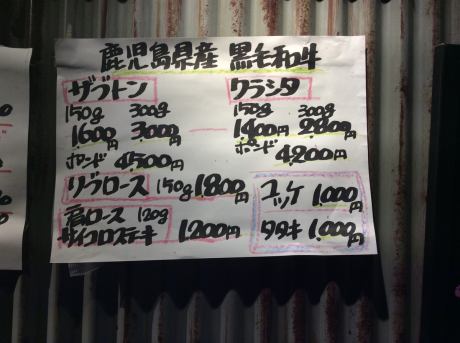 鹿児島県産 黒毛和牛
ザブトン
150g 300g
1600円 3,000円
ポンド 4500円
クラシタ
150g 300g
1400円 2800円
ポンド 4200円
リブロース 150g 1800円
肩ロース 120g
サイコロステーキ 1200円
ユッケ 1,000円
タタキ 1,000円